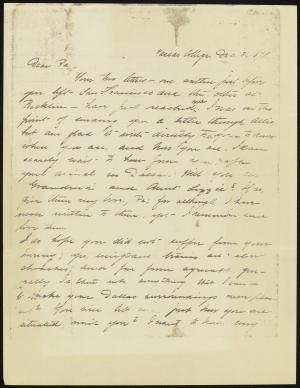 Dec. 3, '9
Dear Pa,
Your two letters - one written just before
you left San Francisco and the other at
Rocklin - have just reached me. I was on the
point of sending you a letter through
but am glad to write directly to you & to know
when you are, and how you are. I can
scarcely wait to hear from you after
your arrival in Dallas. Will you see
Grandma and Aunt Lizzie? If so,
give them my love, Pa, for although I have
never written to them, yet I remember and
love them
I do hope you did not suffer from your
journey; yes, immigrant trains are slow
and far from agreeable
rally. Is there not anything that I could
to make your Dallas surroundings more pleas-
ant? You will tell me just how you are
situated, won't you? I want to know very